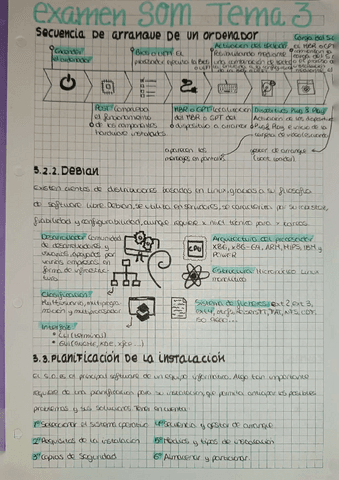 examen SOM Tema 3
Secuencia de arranque de un ordenador
Encender
el ordenador
Bios o UEFI el
procesador ejecuta la Bios
o UEFI
Activación del teclado
Carga del S.O
el MBR o GPT
Post comprueba
el funcionamiento
de los componentes
hardware instalados
MBR o GPT localización
del MBR o GPT del
dispositivo a arrancar
Dispositivos Plug & Play
Activación de los dispositivos
Plug & Play, e inicio de la
tarjeta de vídeo
aparecen los
mensajes en pantalla
gestor de arranque
5.2.2. Debian
Existen cientos de distribuciones basadas en Linux, gracias a su filosofía
de software libre. Debian, se utiliza en servidores, se caracteriza por su
fiabilidad y configurabilidad, aunque requiere + nivel técnico para
Desarrollador Comunidad
de desarrolladores y
usuarios, apoyados por
varias empresas en
forma de infraestruc-
turas
CPU
Arquitectura del procesador
X86, x86-64, ARM, MIPS, IBM y
POWER
Estructura
Clasificación
Multiusuario, multiproga
mación y multiprocesador
Sistema de ficheros ext2, ext3,
ext4,
ISO 9660...
Interfaz
• CLI (terminal)
• GUI (GNOME, KDE, xfce...)
5.3. Planificación de la instalación
El S.O. es el principal software de un equipo informático. Algo tan importante
requiere de una planificación para su instalación que permita anticipar los posibles
problemas y sus soluciones. Tener en cuenta:
1º Seleccionar el sistema operativo
4º Secuencia y gestor de arranque
2º Requisitos de la instalación
5º
y tipos de instalación
3º Copias de seguridad
6º Almacenar y particionar.